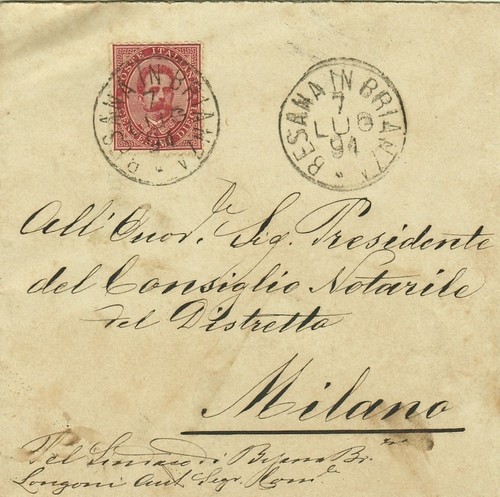 POSTE ITALIANE
BESANA IN BRIANZA
CENTESIMI DIECI
BESANA IN BRIANZA
7
LUG
94
All'Onor.le Sig. Presidente
del Consiglio Notarile
del Distretto
Milano
Del Sindaco di Besana Br.
Longoni Ant. Segr. Com.le